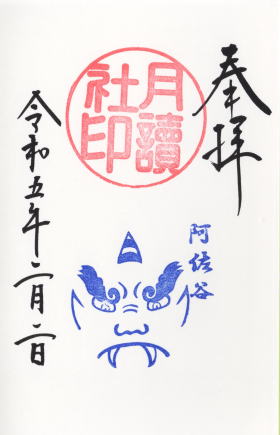 奉拝
月讀
社印
阿佐谷
令和五年二月二日